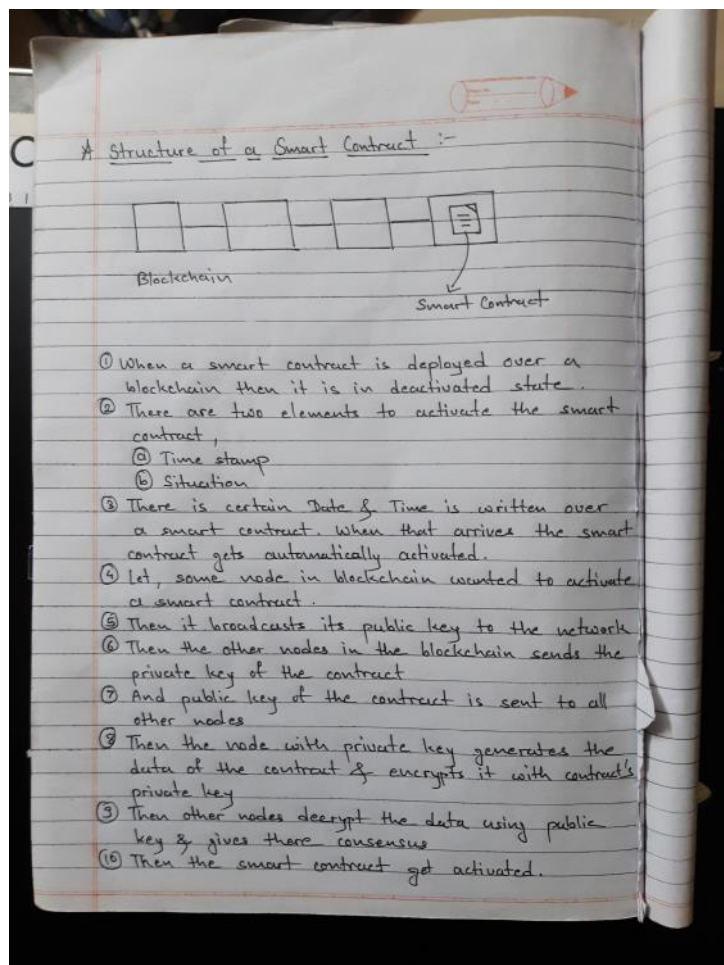 * Structure of a Smart Contract :-
Blockchain
Smart Contract
① When a smart contract is deployed over a
blockchain then it is in deactivated state.
② There are two elements to activate the smart
contract,
ⓐ Time stamp
ⓑ Situation
③ There is certain Date & Time is written over
a smart contract. When that arrives the smart
contract gets automatically activated.
④ Let, some node in blockchain wanted to activate
a smart contract.
⑤ Then it broadcasts its public key to the network
⑥ Then the other nodes in the blockchain sends the
private key of the contract
⑦ And public key of the contract is sent to all
other nodes
⑧ Then the node with private key generates the
data of the contract & encrypts it with contract's
private key
⑨ Then other nodes decrypt the data using public
key & gives there consensus
⑩ Then the smart contract get activated.